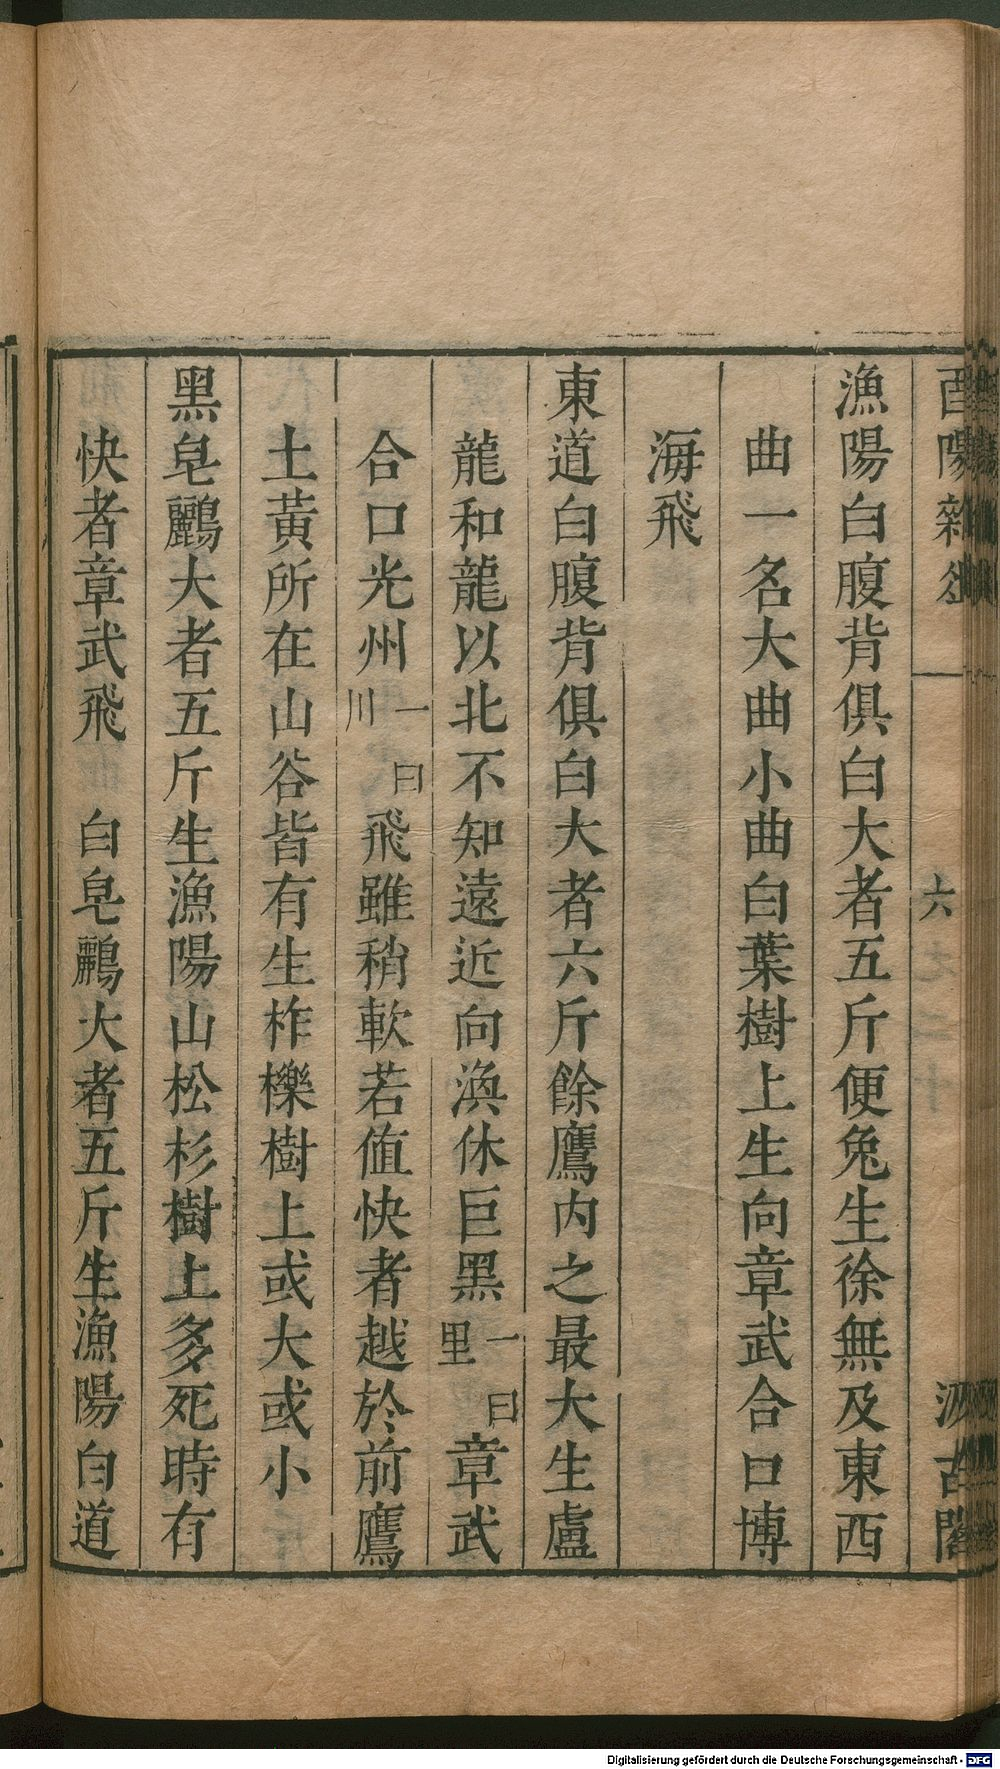 酉陽雜俎 六 汲古閣
漁陽白腹背俱白大者五斤便兔生徐無及東西
曲一名大曲小曲白葉樹上生向章武合口博
海飛
東道白腹背俱白大者六斤餘鷹内之最大生盧
龍和龍以北不知遠近向渙休巨黑一曰里章武
合口光州一曰川飛雖稍軟若值快者越於前鷹
土黃所在山谷皆有生柞櫟樹上或大或小
黑皂鸝大者五斤生漁陽山松杉樹上多死時有
快者章武飛 白皂鸝大者五斤生漁陽白道
Digitalisierung gefördert durch die Deutsche Forschungsgemeinschaft - DFG